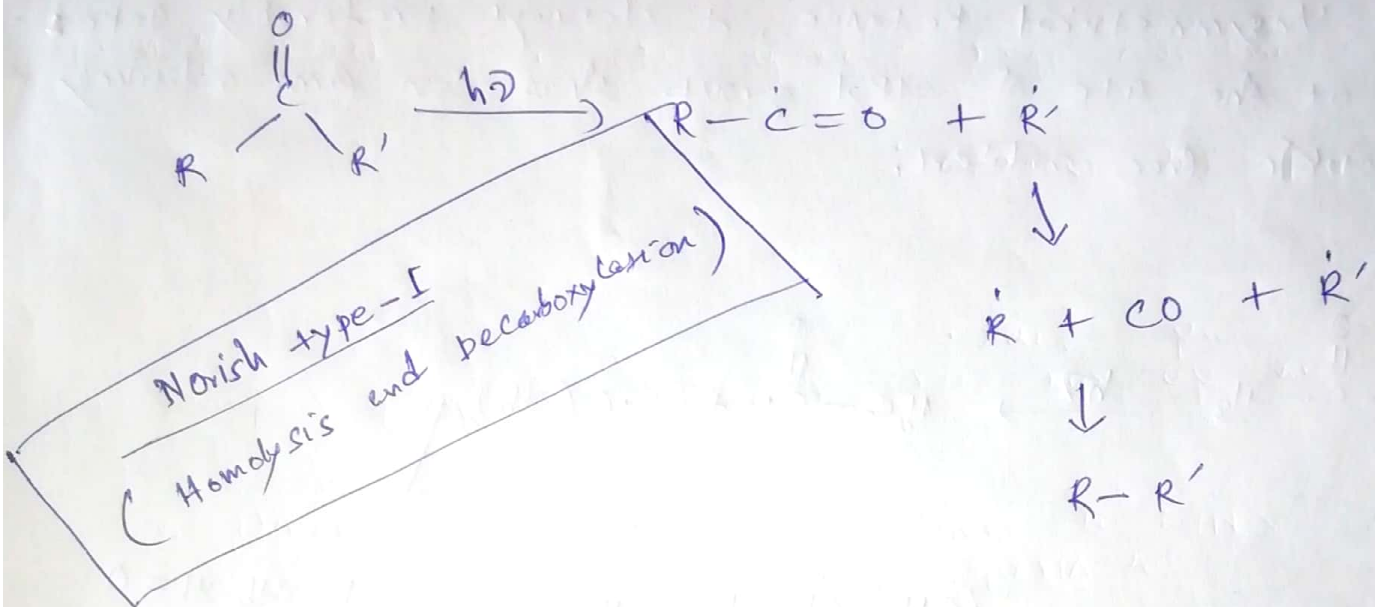 O
||
C
R R'
hν
R – Ċ = O + Ṙ'
↓
Ṙ + CO + Ṙ'
↓
R – R'
Norish type-I
(Homolysis and Decarboxylation)